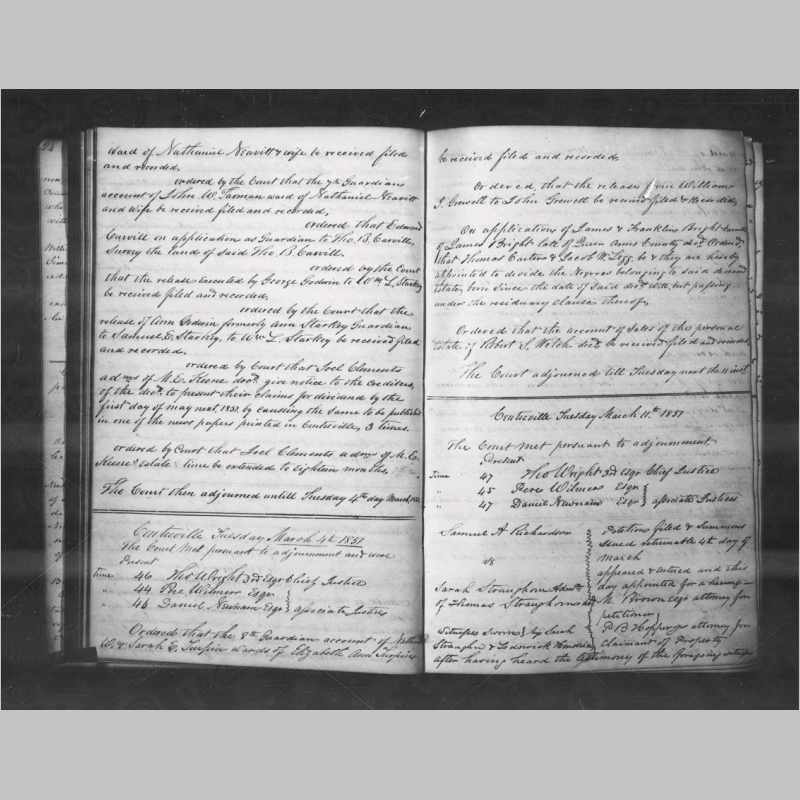 ward of Nathaniel Neavitt & wife be received filed
and recorded.
ordered by the Court that the 7th Guardians
account of John W. Tarman ward of Nathaniel Neavitt
and Wife be received filed and recorded.
ordered that Edward
Carvill on application as Guardian to Tho. B. Carvill,
Survey the land of Said Tho. B. Carvill.
ordered by the Court
that the release executed by George Godwin to Wm L. Starkey
be received filed and recorded,
ordered by the Court that the
release of Ann Godwin formerly Ann Starkey Guardian
to Samuel E. Starkey, to Wm L. Starkey be received filed
and recorded.
ordered by Court that Joel Clements
admr of M. C. Keene decd. give notice to the creditors,
of the decd. to present their claims for dividend by the
first day of may next, 1851. by causeing the same to be published
in one of the news papers printed in Centreville, 3 times.
ordered by Court that Joel Clements admr of M. C.
Keene Estate time be extended to eighteen months,
The Court then adjourned untill Tuesday 4th day March
Centreville Tuesday March 4th 1851
The Court Met persuant to adjournment and were
Present
Time 46 Tho. Wright 3rd Esqr Chief Justice
" 44 Pere Wilmer Esqr
" 46 Daniel Newnam Esqr } associate Justices
Ordered that the 8th Guardian account of
W. & Sarah E. Turpin wards of Elizabeth Ann Turpin
be received filed and recorded.
Ordered, that the release from William
J. Grewett to John Grewett be received filed & Recorded,
On applications of James & Franklin Bright
of James Bright late of Queen Anns County decd. Ordered,
that Thomas Carter & Jacob W. Legg be & they are hereby
appointed to devide the Negroes belonging to said deceased
estate, born Since the date of said decd. will, but passing
under the reciduary clause thereof.
Ordered that the account of Sales of the personal
estate of Robert S. Welch decd. be received filed and recorded
The Court adjourned till Tuesday next the 11 inst
Centreville Tuesday March 11th 1851
The Court Met persuant to adjournment
Present
Time 47 Tho Wright 3rd Esqr Chief Justice
" 45 Pere Wilmer Esqr
" 47 Daniel Newnam Esqr } associate Justices
Samuel A Richardson
vs
Sarah Straughorn
of Thomas Straughorn
Witnesses Sworn } by Sarah
Straughn & Lodwick
Petitions filed & Summons
issued returnable 4th day of
March
appeared & entered and this
day appointed for a hearing—
M. Brown Esqr attorney for
petitioner,
P. B. Hopper attorney for
Claimant of Property
after having heard the testimony of the foregoing witnesses